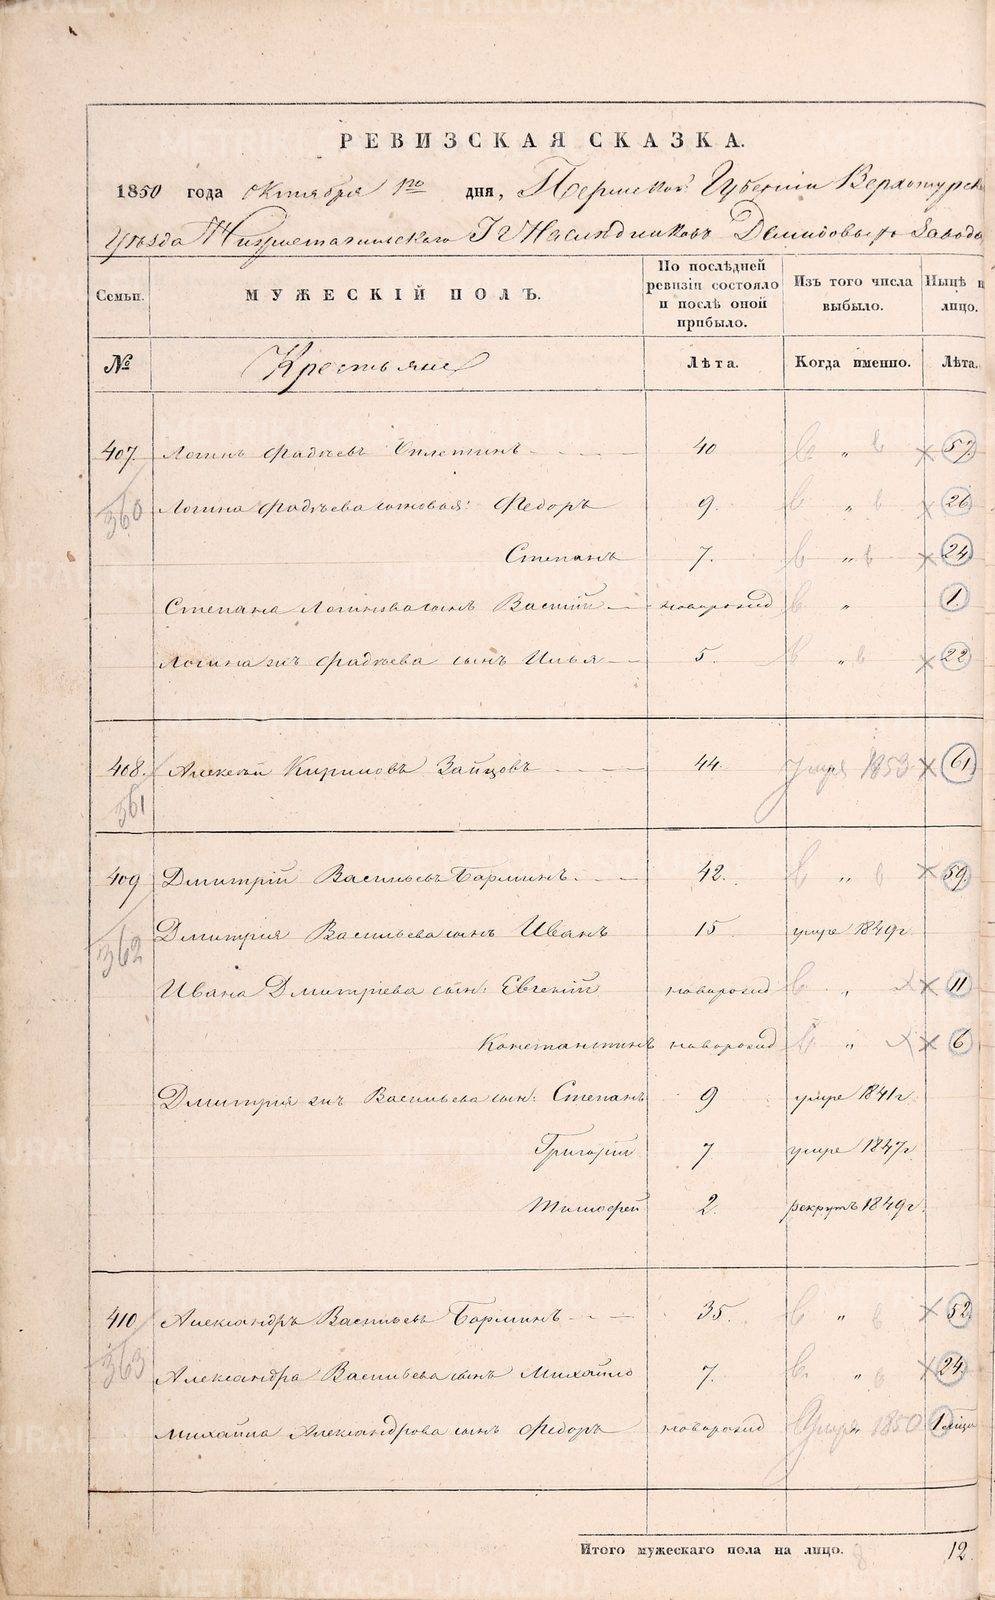 РЕВИЗСКАЯ СКАЗКА.
1850 года Октября 1го дня, Пермской Губернiи Верхотурск
Уѣзда Нижнетагильскаго Гг Наслѣдниковъ Демидовыхъ Завода
Семьи. МУЖЕСКIЙ ПОЛЪ. По послѣдней ревизiи состояло и послѣ оной прибыло. Изъ того числа выбыло. Нынѣ н лицо.
№ Крестьяне Лѣта. Когда именно. Лѣта.
407. Логинъ Фадѣевъ 40 „ 57.
360 Логина Фадѣева сыновья: Федоръ 9. „ 26
Степанъ 7. „ 24
Степана Логинова сынъ Василiй новорожд „ 1.
Логина же Фадѣева сынъ Илья 5. „ 22
408. Алексѣй Кириловъ Зайцовъ 44. умре 1853 61
361
409 Дмитрiй Васильевъ Барминъ 42. „ 59.
362 Дмитрiя Васильева сынъ Иванъ 15 умре 1849г.
Ивана Дмитрiева сын: Евгенiй новорожд „ 11
Константинъ новорожд „ 6
Дмитрiя же Васильева сын: Степанъ 9 умре 1841г.
Григорiй 7 умре 1847г.
Тимофей 2. рекрутъ 1849г.
410 Александръ Васильевъ Барминъ 35. „ 52
363 Александра Васильева сынъ Михайло 7. „ 24
Михайла Александрова сынъ Федоръ новорожд умре 1850 1 мѣцъ
Итого мужескаго пола на лицо. 12.